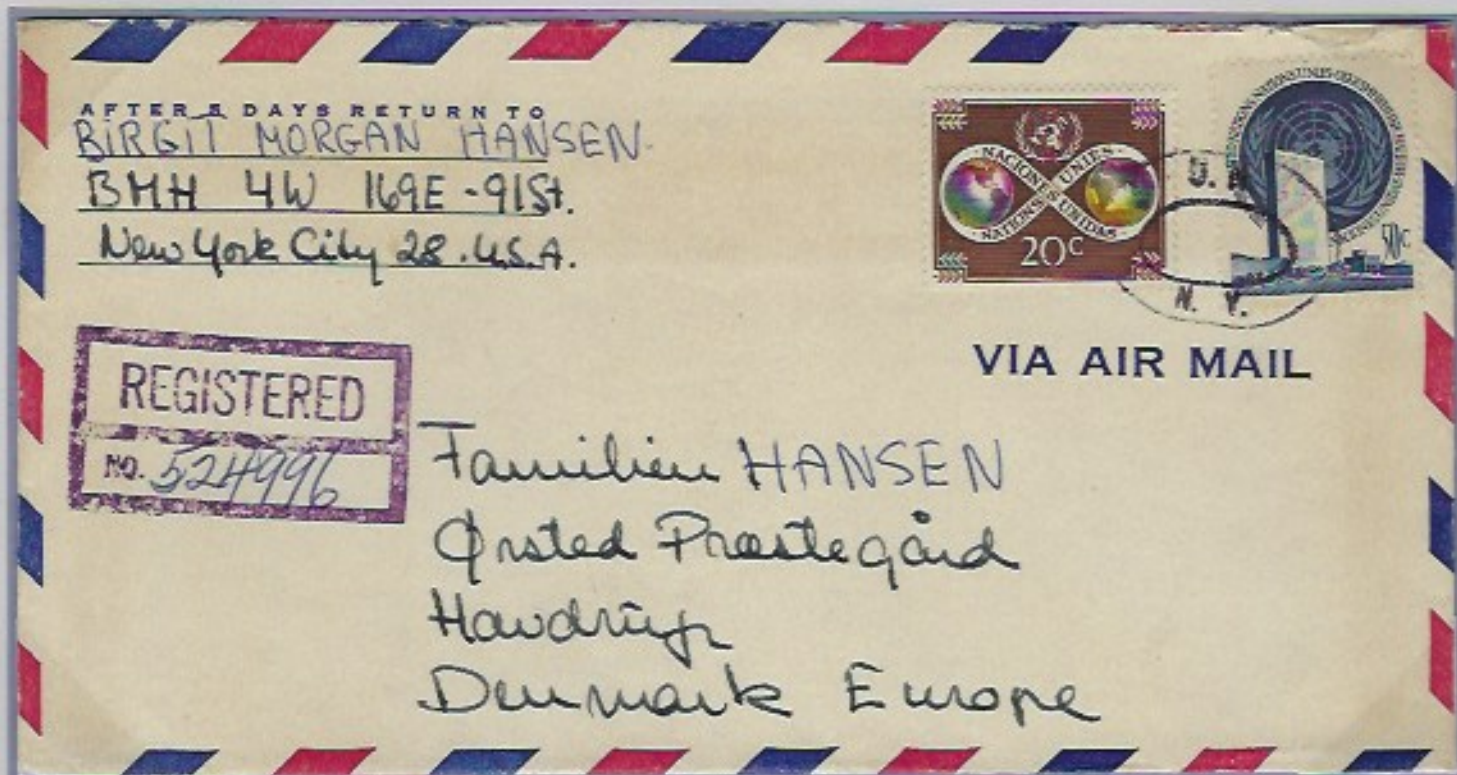 AFTER 5 DAYS RETURN TO
BIRGIT MORGAN HANSEN
BMH 4W 169E-91St.
New York City 28. U.S.A.
NACIONES UNIES
NATIONS UNIDAS
20c
50c
U. N.
N. Y.
VIA AIR MAIL
REGISTERED
NO. 524996
Familien HANSEN
Ørsted Præstegård
Havdrup
Denmark Europe